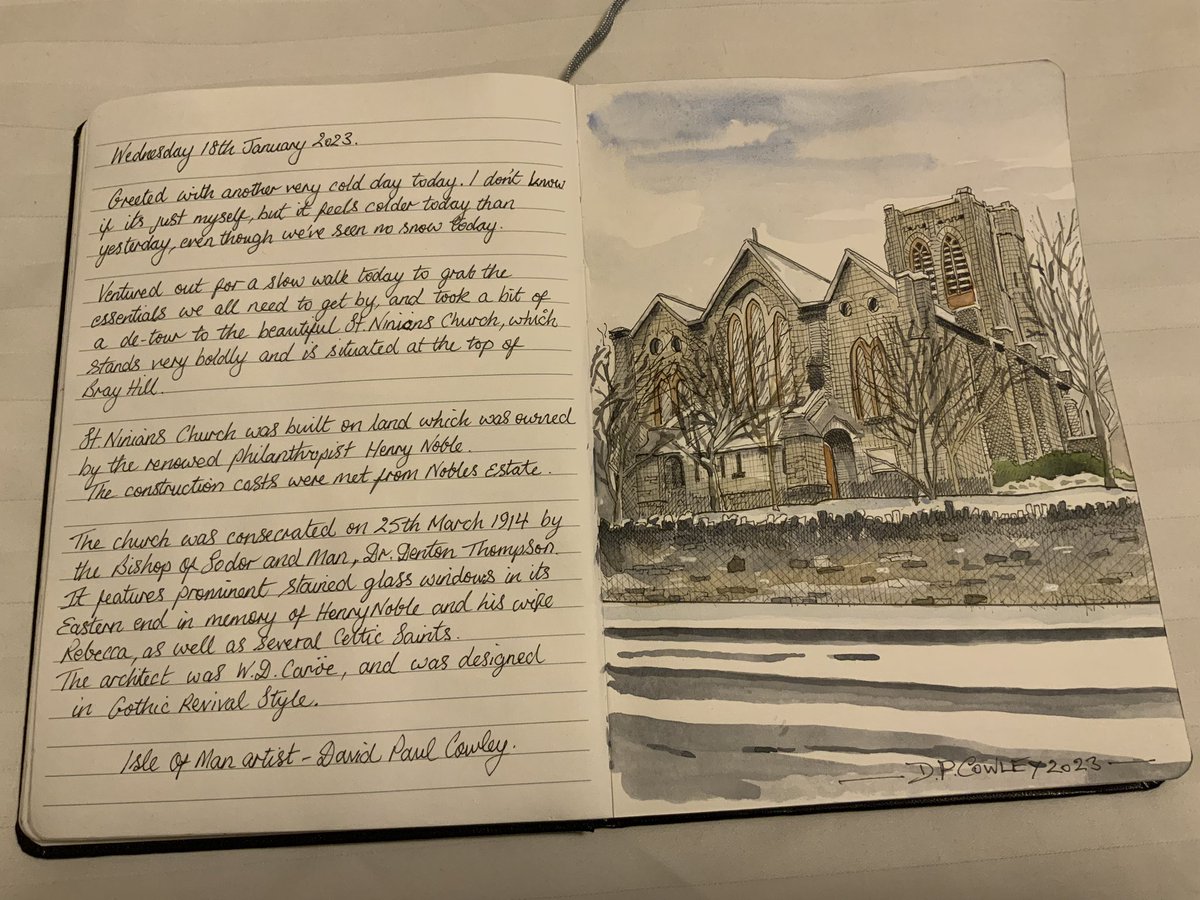 Wednesday 18th January 2023.
Greeted with another very cold day today. I don't know
if its just myself, but it feels colder today than
yesterday, even though we've seen no snow today.
Ventured out for a slow walk today to grab the
essentials we all need to get by, and took a bit of
a de-tour to the beautiful St. Ninians Church, which
stands very boldly and is situated at the top of
Bray Hill.
St Ninians Church was built on land which was owned
by the renowed philanthropist Henry Noble.
The construction costs were met from Nobles Estate.
The church was consecrated on 25th March 1914 by
the Bishop Of Sodor and Man, Dr. Denton Thompson.
It features prominent stained glass windows in its
Eastern end in memory of Henry Noble and his wife
Rebecca, as well as several Celtic Saints.
The architect was W.D. Caröe, and was designed
in Gothic Revival Style.
Isle Of Man artist - David Paul Cowley.
D.P. COWLEY 2023